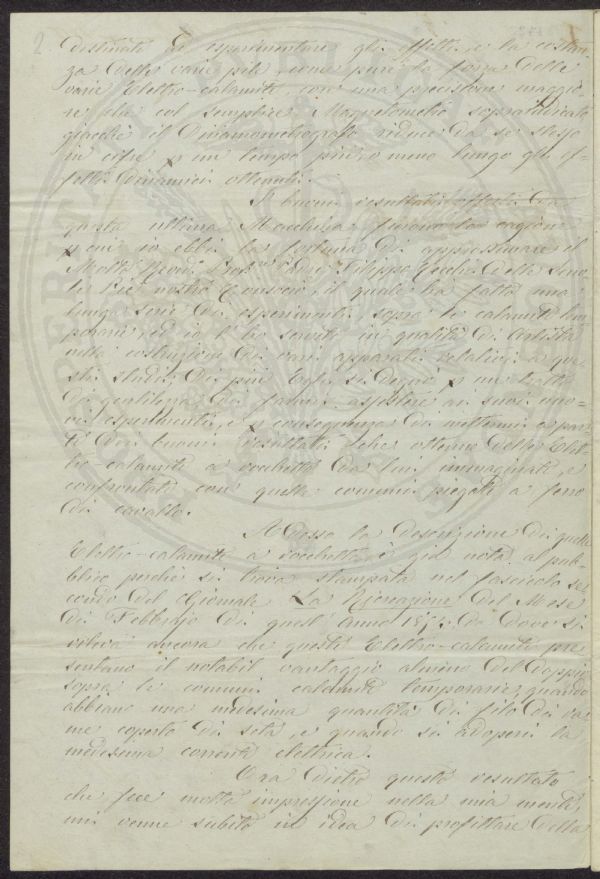 2
destinato ad esperimentare gli effetti, e la costan-
za delle varie pile, come pure la forza delle
varie Elettro-calamite, con una precisione maggio-
re che col semplice Magnetometro sopraindicato
giacchè il Dinamometrografo riduce da se stesso
in cifre p un tempo più, o meno lungo gli ef-
fetti Dinamici ottenuti.
I buoni resultati offerti da
questa ultima Macchina furono la cagione
p cui io ebbi la fortuna di approssimare il
Molto Revdo Prof. Padre Filippo Cecchi delle Scuo-
le Pie nostro Consocio, il quale ha fatto una
lunga serie di esperimenti sopra le calamite tem-
porarie, ed io l'ho servito in qualità di Artista
nella costruzione di vari apparati relativi a que-
sti studi. Di più Egli si degnò p un tratto
di gentilezza di farmi assistere ai suoi nuo-
vi esperimenti, e p conseguenza di mettermi a par-
te dei buoni resultati che ottenne delle Elet-
tro-calamite a rocchetto da lui immaginate e
confrontate con quelle comuni piegate a ferro
di cavallo.
Adesso la descrizione di quelle
Elettro-calamite a rocchetto è già nota al pub-
blico perchè si trova stampata nel fascicolo se-
condo del Giornale La Ricreazione del Mese
di Febbrajo di quest'anno da dove si
rileva ancora che queste Elettro-calamite pre-
sentano il notabil vantaggio almeno del doppio
sopra le comuni calamite temporarie, quando
abbiano una medesima quantità di filo di ra-
me coperto di seta, e quando si adoperi la
medesima corrente elettrica.
Ora dietro questo resultato
che fece molta impressione nella mia mente,
mi venne subito in idea di profittare della